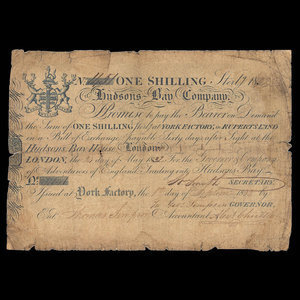 ONE SHILLING Sterlg
Hudsons Bay Company.
Promise to pay the Bearer on Demand
the Sum of ONE SHILLING Sterlg at YORK FACTORY, in RUPERTS LAND
in a Bill of Exchange payable Sixty days after Sight at the
Hudsons Bay House London
LONDON, the day of May 18 For the Governor & Company
of Adventurers of England trading into Hudsons Bay.
W. Smith SECRETARY.
Issued at York Factory, the day of 18 by
Geo. Simpson GOVERNOR,
Entd Thomas Simpson Accountant Alexr Christie